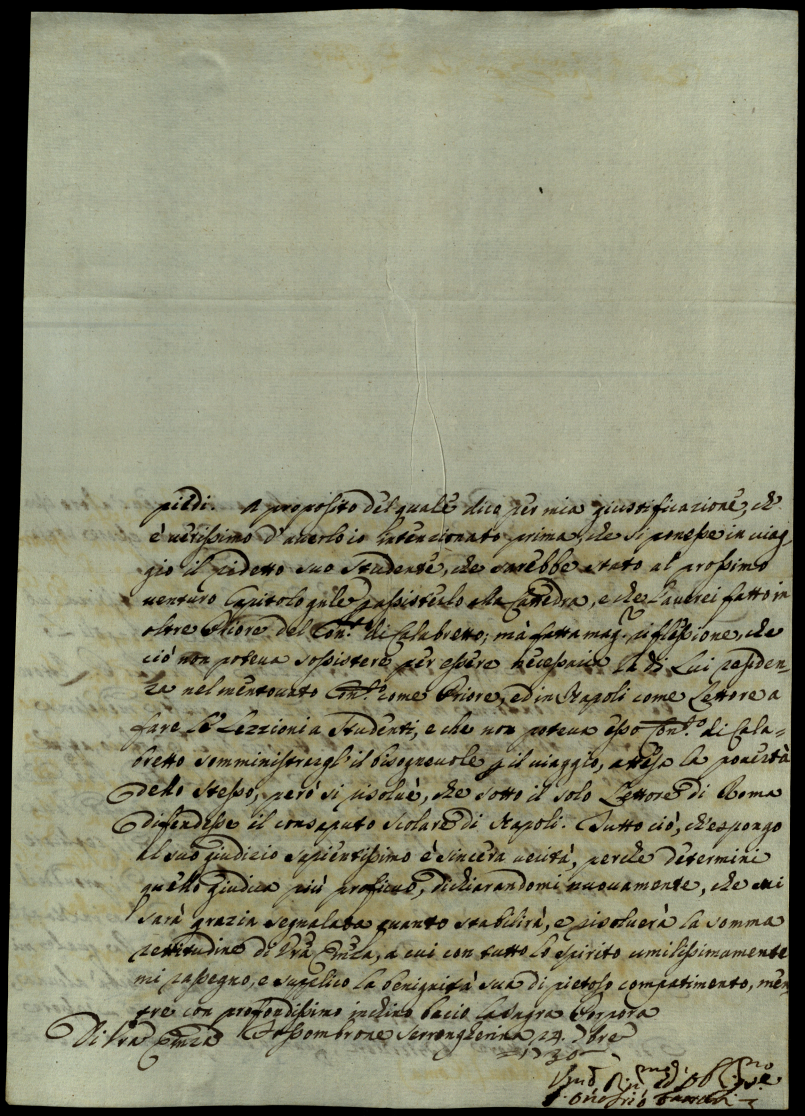 piedi. A proposito del quale dico per mia giustificazione, che
è verissimo d'averlo io intenzionato prima, che si ponesse in viag-
gio il predetto suo Studente, che sarebbe stato al prossimo
venturo Capitolo assisterlo alla Catedra, e che l'averei fatto in
oltre Priore del Con.to di Calabretto; mà fatta mag.re riflessione, che
ciò non poteva sossistere per essere necessaria la di Lui residen-
za nel mentovato Con.to come Priore, ed in Napoli come Lettore a
fare le Lezzioni a Studenti, e che non poteva esso Con.to di Cala-
bretto somministrargli il bisognevole p il viaggio, attesa la povertà
dello stesso, però si risolvè, che sotto il solo Lettore di Roma
difendesse il consaputo scolare di Napoli. Tutto ciò, ch'espongo
al suo giudicio sapientissimo è sincera verità, perche determini
quello giudica più proficuo, dichiarandomi nuovamente, che mi
sarà grazia segnalata quanto stabilirà, e risolverà la somma
rettitudine di Vra Emza, a cui con tutto lo spirito umilissimamente
mi rassegno, e supplico la benignità sua di pietoso compatimento, men-
tre con profondissimo inchino bacio la Sagra Porpora
Di Vra Emza Sassombrone Serrongherina 24. 7bre
1730